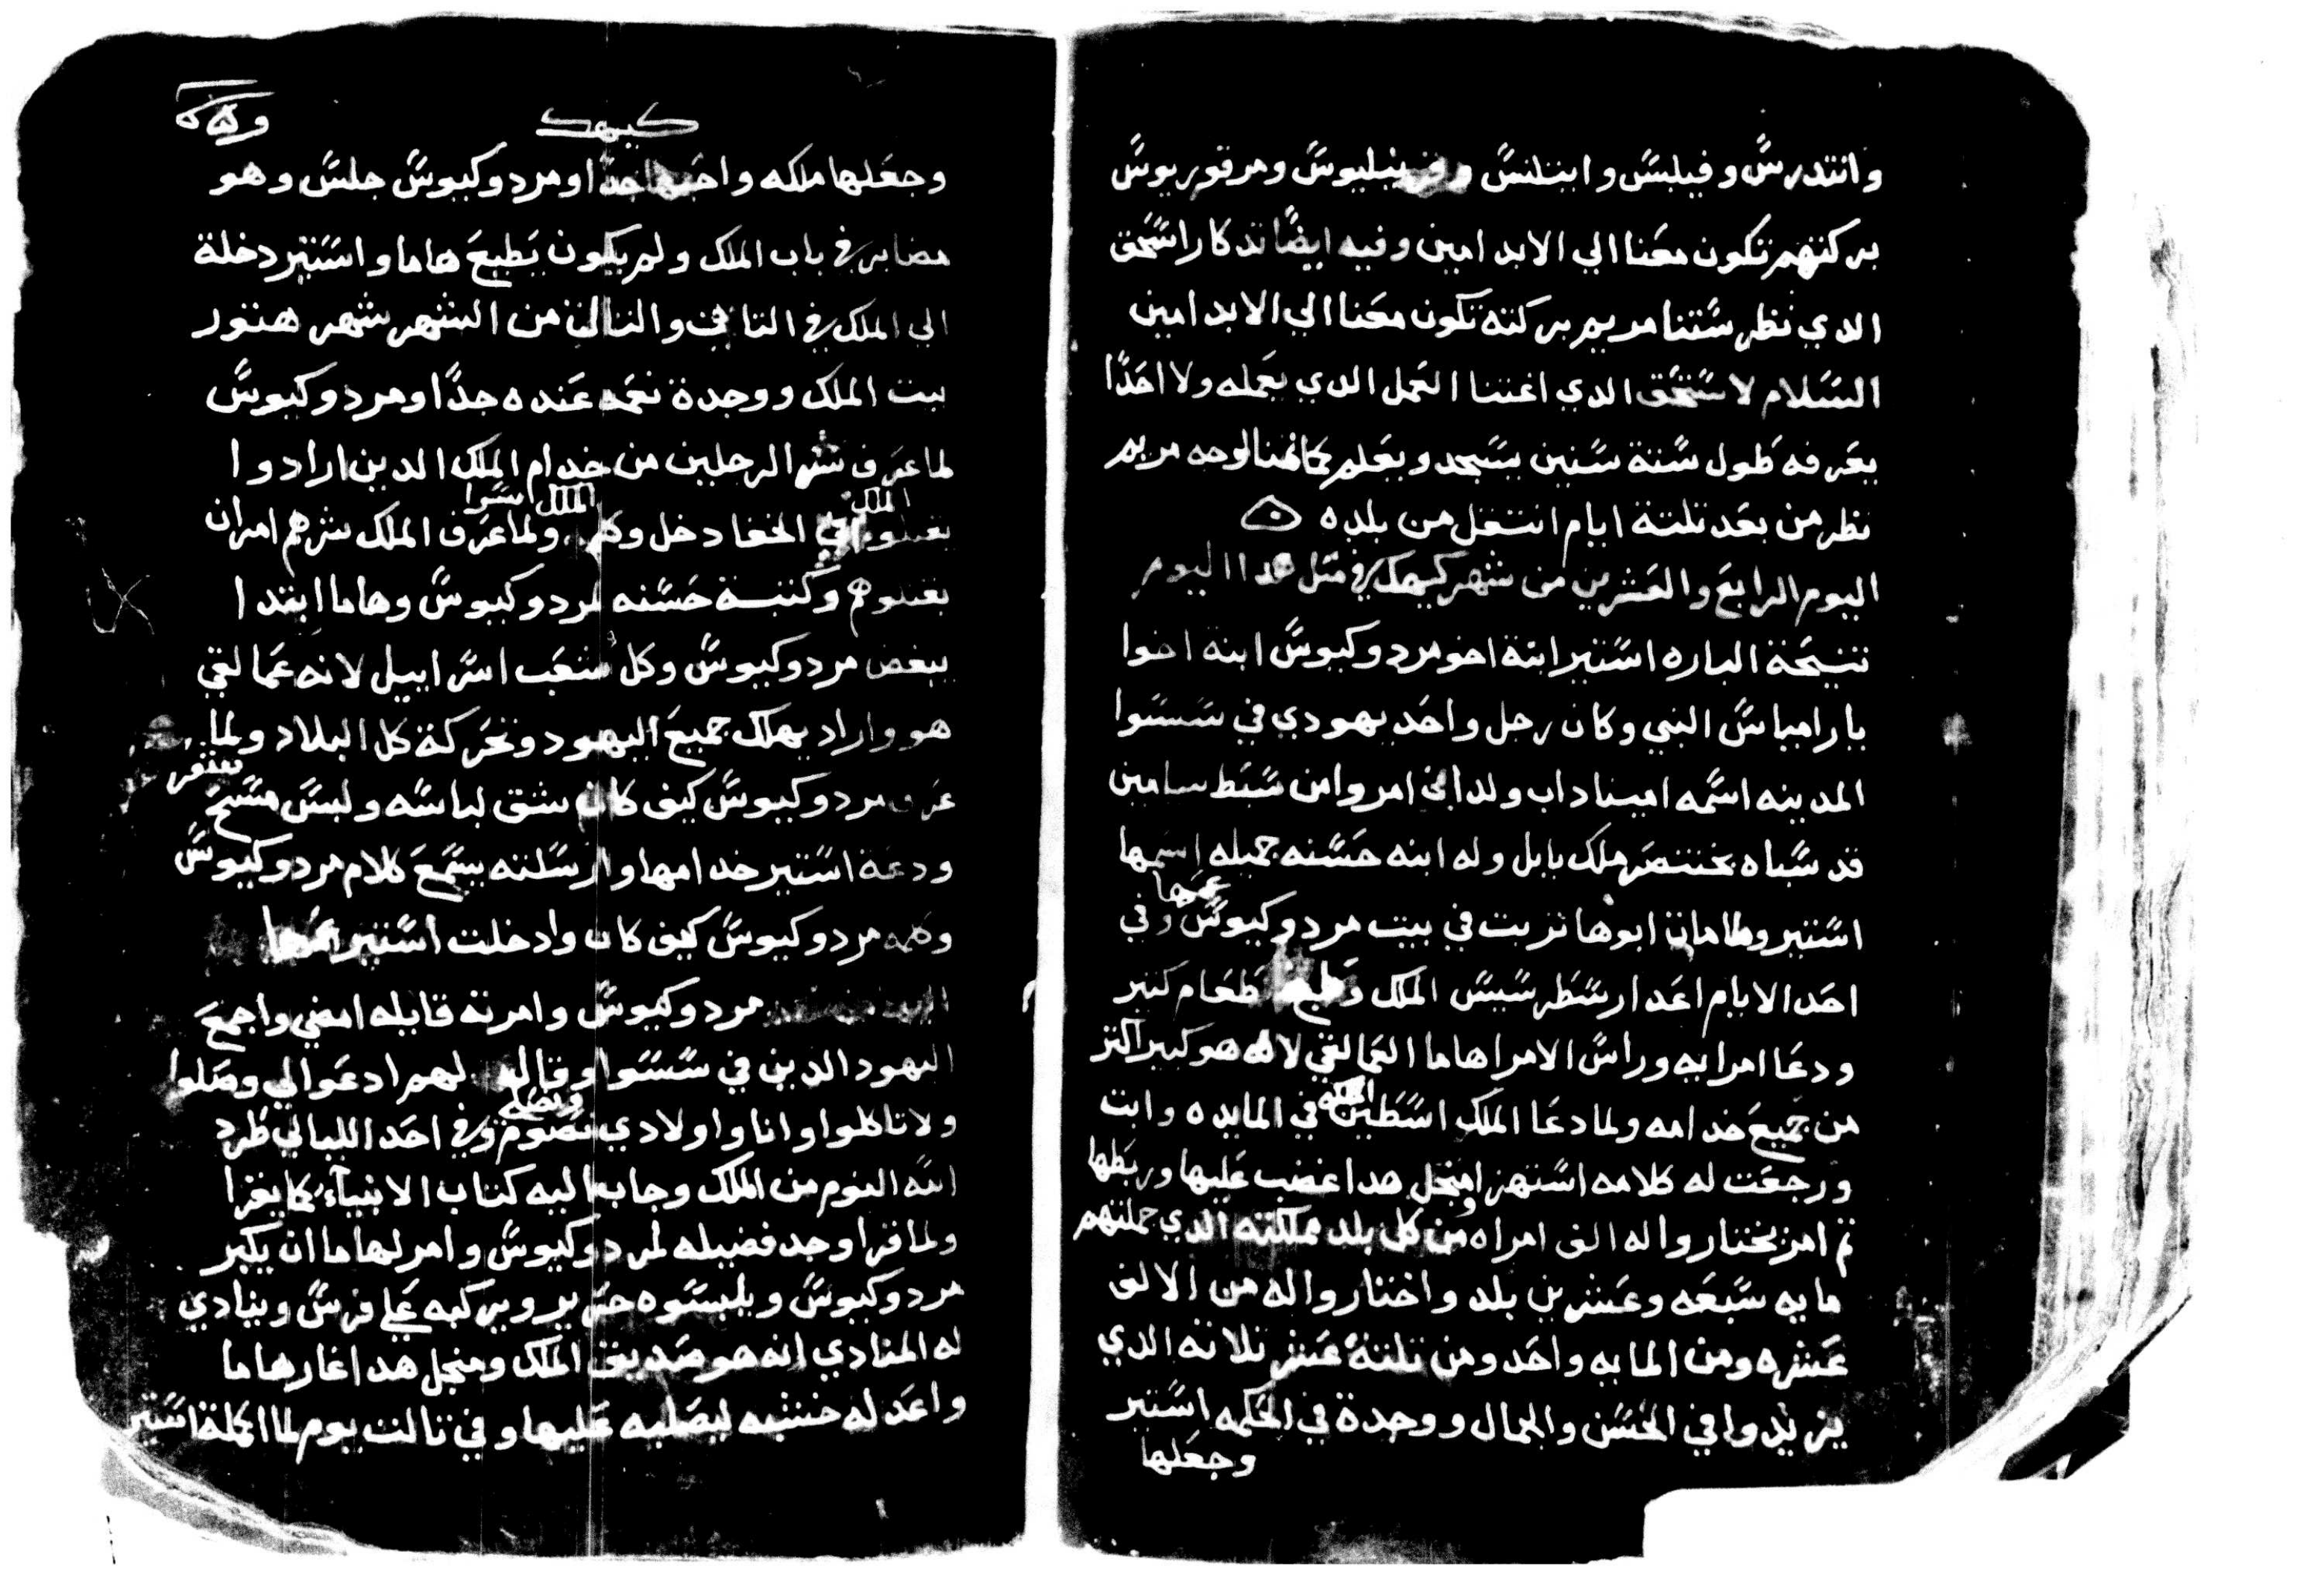 وانتدرس وفيلبس وابتلنس وفرينبليوس ومرقوريوس
بركتهم تكون معنا الي الابد امين وفيه ايضًا تدكار اسحق
الدي نظر ستنا مريم بركته تكون معنا الي الابد امين
السلام لاسحق الدي اغتنا العمل الدي يعمله ولا احدًا
يعرفه طول ستة سنين يسجد ويعلم كما لوجه مريم
نظر من بعد تلتة ايام انتقل من بلده
اليوم الرابع والعشرين من شهر كيهك في متل هدا اليوم
تنيحة الباره استير ابنة اخو مردوكيوس ابنة اخوا
يارامياس النبي وكان رجل واحد يهودي في سسوا
المدينه اسمه اميناداب ولد امروا من سبط سامين
قد سباه بختنصر ملك بابل وله ابنه حسنه جميله اسمها
عمها
استير ولما ماتة ابوها تربت في بيت مردوكيوس وفي
احد الايام اعد ارسطرسيس الملك وطبخ طعام كتير
ودعا امرايه وراس الامرا هاما العمالقي لانه هو كبير اكتر
الملكه
من جميع خدامه ولما دعا الملك اسطين في المايده وابت
ورجعت له كلامه استهزا ومنجل هدا غضب عليها وربطها
تم امر يختاروا له الف امراه من كل بلد مملكته الدي جملتهم
مايه سبعه وعشرين بلد واختاروا له من الالف
عشره ومن المايه واحد ومن تلتة عشر تلاته الدي
يزيدوا في الحسن والجمال ووجدة في الحكمه استير
وجعلها
كيهك
وجعلها ملكه واحبها جدًا ومردوكيوس جلس وهو
مصابر في باب الملك ولم يكون يطيع هاما واستير دخلة
الي الملك في التاني والتالت من الشهر شهر هتور
بيت الملك ووجدة نعمه عنده جدًا ومردوكيوس
لما عرف شر الرجلين من خدام الملك الدين ارادوا
الملك الملك اسوا
يقتلوا في الخفا دخل وكلم ولما عرف الملك شرهم امر ان
يقتلوهم وكتبة حسنه لمردوكيوس وهاما ابتدا
يبغض مردوكيوس وكل شعب اسراييل لانه عمالقي
هو واراد يهلك جميع اليهود وتحركة كل البلاد ولما
عرف مردوكيوس كيف كان شق لباسه ولبس مسح
ودعة استير خدامها وارسلته يسمع كلام مردوكيوس
وكلمه مردوكيوس كيف كان وادخلت استير عمها
مردوكيوس وامرته قايله امضي واجمع
اليهود الدين في سسوا وقال لهم ادعوا لي وصلوا
ونصلي
ولا تاكلوا وانا واولادي نصوم وفي احد الليالي طرد
الله النوم من الملك وجاب اليه كتاب الانبيآء كما يقرا
ولما قرا وجد فضيله لمردوكيوس وامر لهاما ان يكبر
مردوكيوس ويلبسوه حرير ويركبه علي فرس وينادي
له المنادي انه هو صديق الملك ومنجل هدا غار هاما
واعد له خشبه ليصلبه عليها وفي تالت يوم لما اكملة استير